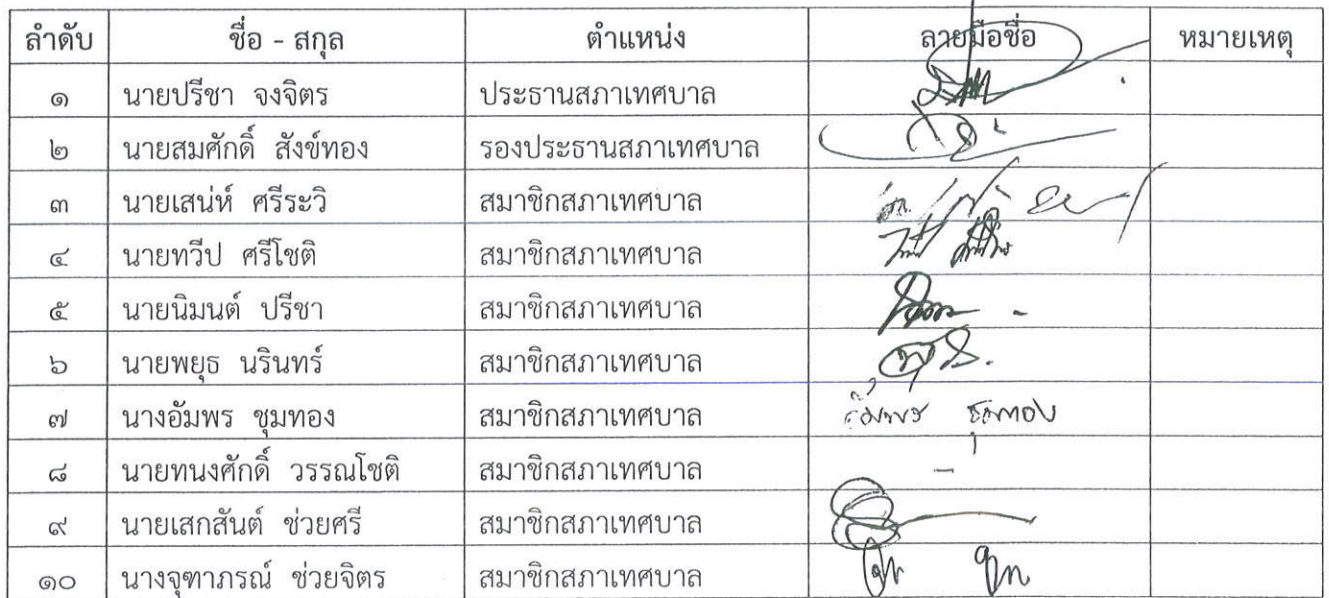 ลำดับ ชื่อ - สกุล ตำแหน่ง ลายมือชื่อ หมายเหตุ
๑ นายปรีชา จงจิตร ประธานสภาเทศบาล
๒ นายสมศักดิ์ สังข์ทอง รองประธานสภาเทศบาล
๓ นายเสน่ห์ ศรีระวิ สมาชิกสภาเทศบาล
๔ นายทวีป ศรีโชติ สมาชิกสภาเทศบาล
๕ นายนิมนต์ ปรีชา สมาชิกสภาเทศบาล
๖ นายพยุธ นรินทร์ สมาชิกสภาเทศบาล
๗ นางอัมพร ชุมทอง สมาชิกสภาเทศบาล อัมพร ชุมทอง
๘ นายทนงศักดิ์ วรรณโชติ สมาชิกสภาเทศบาล -
๙ นายเสกสันต์ ช่วยศรี สมาชิกสภาเทศบาล
๑๐ นางจุฑาภรณ์ ช่วยจิตร สมาชิกสภาเทศบาล